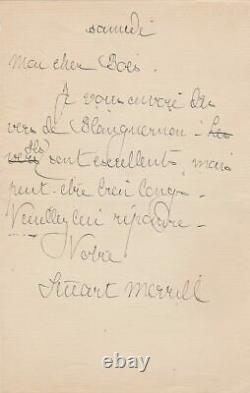 samedi
Mon cher Bois.
Je vous envoie des
vers de Blanguernon - Les
vers Ils sont excellents, mais
peut-être bien longs -
Veuillez lui répondre -
Votre
Stuart Merrill
ebay